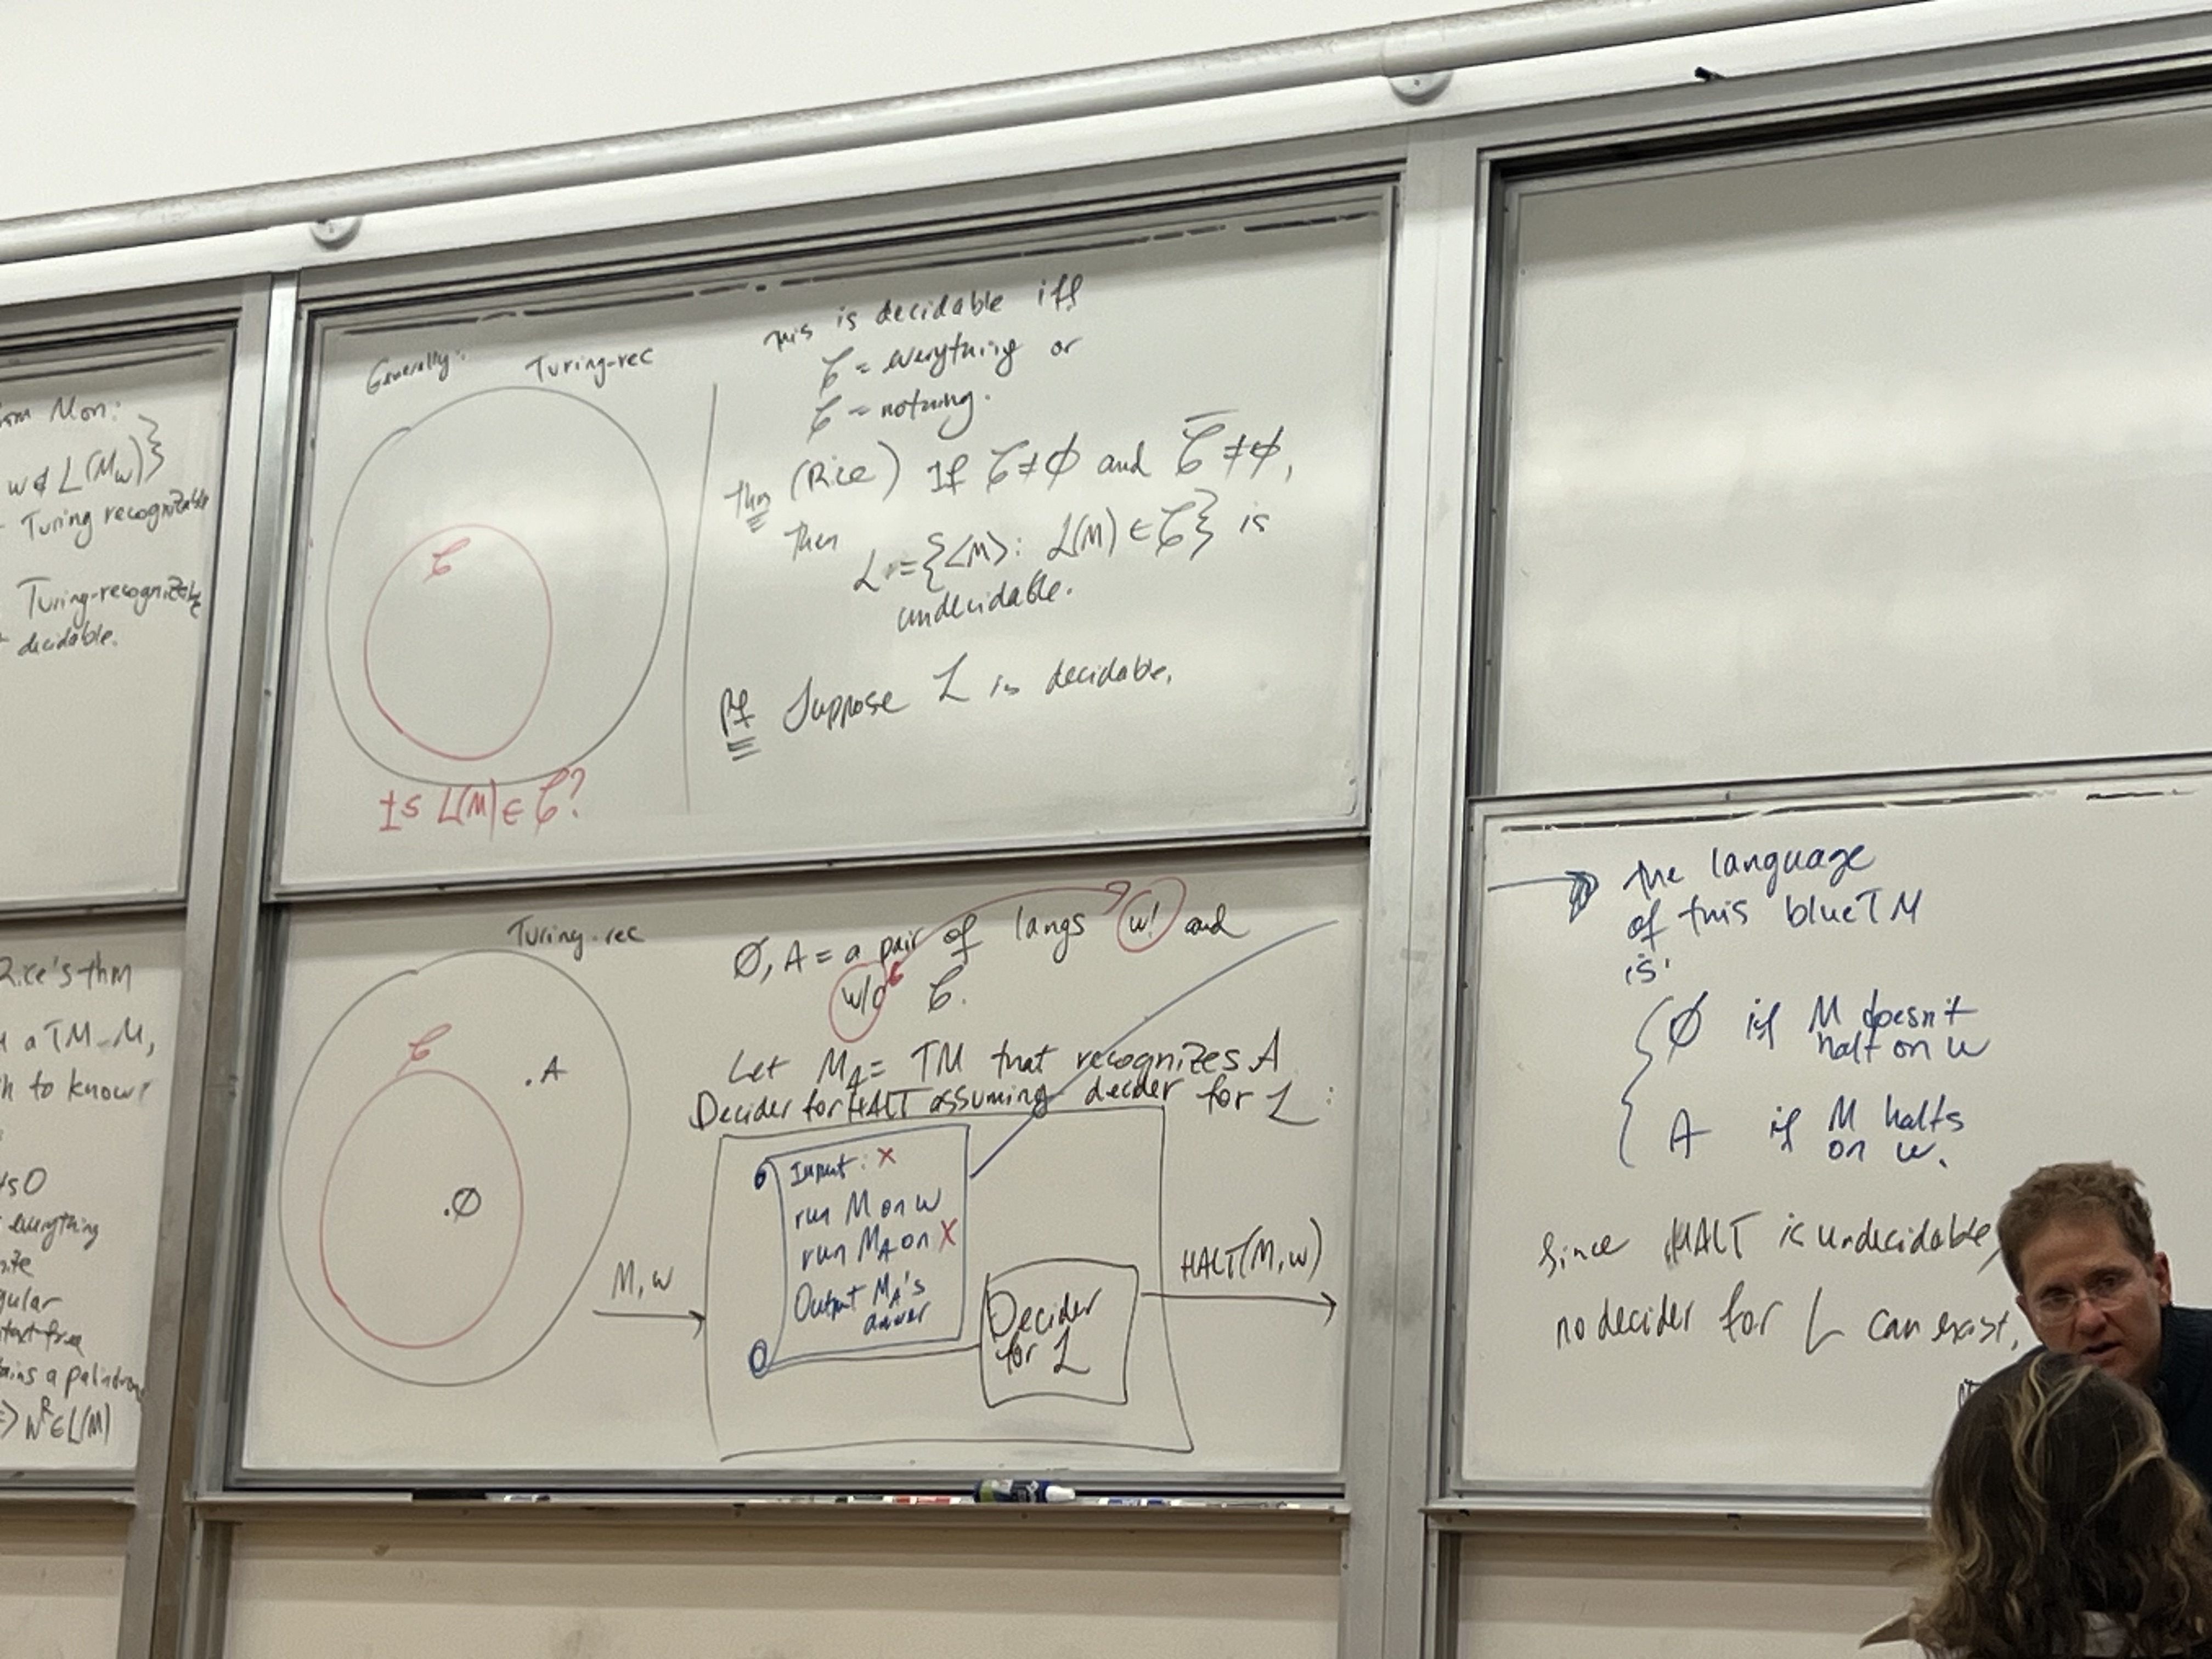 Mon:
w ∉ L(M_w)}
Turing recognizable
Turing-recognizable
decidable.
Generally:
Turing-rec
𝒞
Is L(M) ∈ 𝒞?
This is decidable iff
𝒞 = everything or
𝒞 = nothing.
Thm (Rice) If 𝒞≠∅ and 𝒞̅≠∅,
then
L := {<M>: L(M) ∈ 𝒞} is
undecidable.
Pf Suppose L is decidable.
Rice's thm
a TM M,
to know
everything
a palindrome
=> w^R ∈ L(M)
Turing-rec
𝒞
.A
.∅
∅, A = a pair of langs w! and
w/o 𝒞.
Let M_A = TM that recognizes A
Decider for HALT assuming decider for L:
M, w
Input: x
run M on w
run M_A on x
Output M_A's
answer
Decider
for L
HALT(M,w)
the language
of this blue TM
is:
∅ if M doesn't
halt on w
A if M halts
on w.
Since HALT is undecidable,
no decider for L can exist.